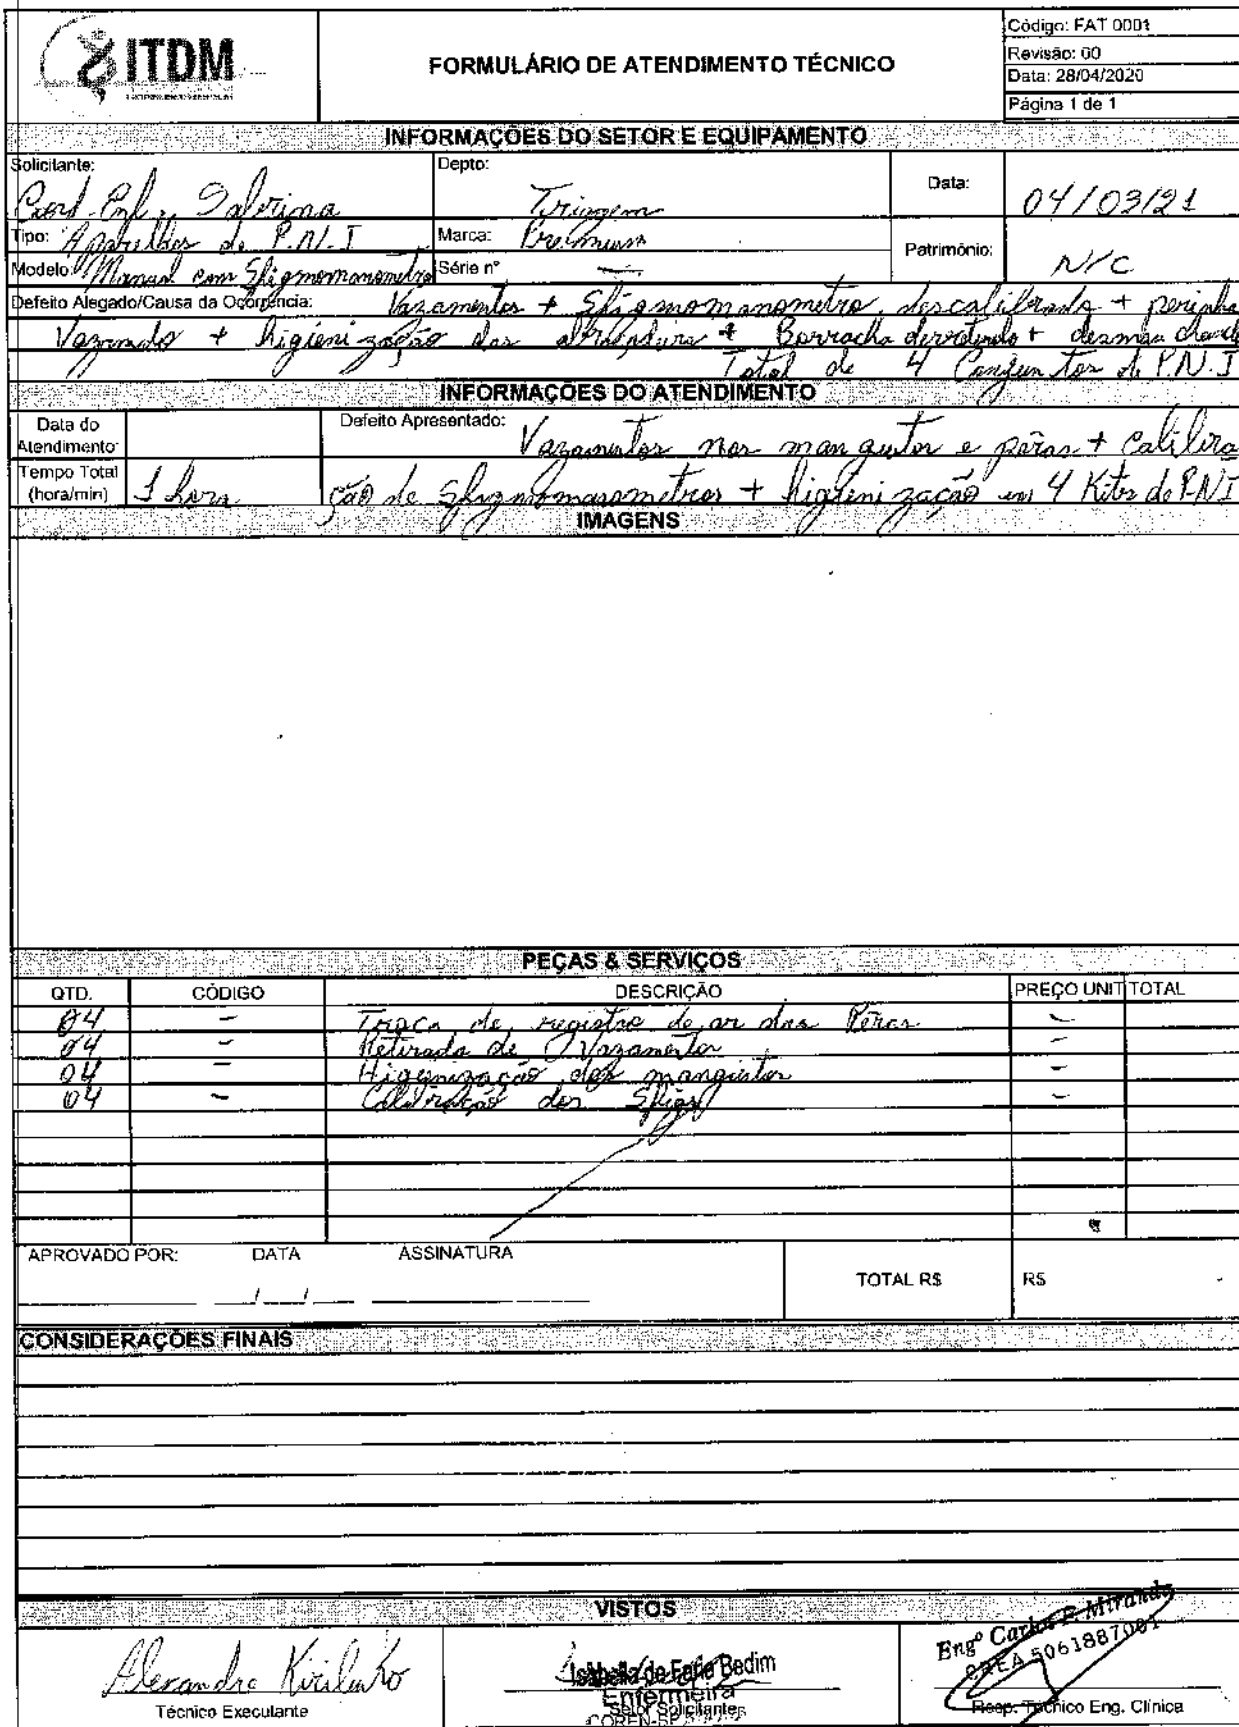 ITDM
FORMULÁRIO DE ATENDIMENTO TÉCNICO
Código: FAT 0001
Revisão: 00
Data: 28/04/2020
Página 1 de 1
INFORMAÇÕES DO SETOR E EQUIPAMENTO
Solicitante: Coord. Enf. Sabrina
Depto: Triagem
Data: 04/03/21
Tipo: Aparelhos de P.N.I
Marca: Premium
Patrimônio: N/C
Modelo: Manual com Sfigmomanometro
Série nº —
Defeito Alegado/Causa da Ocorrência: Vazamentos + Sfigmomanometro descalibrado +
Vazando + higienização das + Borracha derretendo +
Total de 4 Conjuntos de P.N.I
INFORMAÇÕES DO ATENDIMENTO
Data do Atendimento:
Defeito Apresentado: Vazamentos nos manguitos e pêras + calibra
Tempo Total (hora/min) 1 hora
ção de Sfigmomanometros + higienização em 4 Kits de P.N.I
IMAGENS
PEÇAS & SERVIÇOS
QTD. CÓDIGO DESCRIÇÃO PREÇO UNIT TOTAL
04 – Troca de registro de ar das Pêras –
04 – Retirada de Vazamentos –
04 – Higienização dos manguitos –
04 – Calibração dos Sfigs –
APROVADO POR: DATA ASSINATURA
TOTAL R$ R$
__/__/__
CONSIDERAÇÕES FINAIS
VISTOS
Alexandre Kirilenko
Técnico Executante
Isabella de Faria Bedim
Enfermeira
Setor Solicitante
COREN-SP
Engº Carlos E. Miranda
CREA 5061887001
Resp. Técnico Eng. Clínica